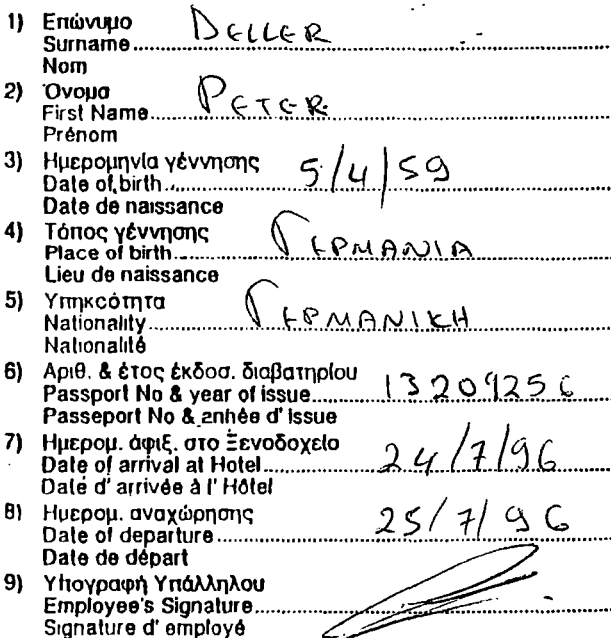 1) Επώνυμο
Surname DELLER
Nom
2) Όνομα
First Name PETER
Prénom
3) Ημερομηνία γέννησης
Date of birth 5/4/59
Date de naissance
4) Τόπος γέννησης
Place of birth ΓΕΡΜΑΝΙΑ
Lieu de naissance
5) Υπηκοότητα
Nationality ΓΕΡΜΑΝΙΚΗ
Nationalité
6) Αριθ. & έτος έκδοσ. διαβατηρίου
Passport No & year of issue
Passeport No & année d' issue
7) Ημερομ. άφιξ. στο Ξενοδοχείο
Date of arrival at Hotel 24/7/96
Date d' arrivée à l' Hôtel
8) Ημερομ. αναχώρησης
Date of departure 25/7/96
Date de départ
9) Υπογραφή Υπάλληλου
Employee's Signature
Signature d' employé